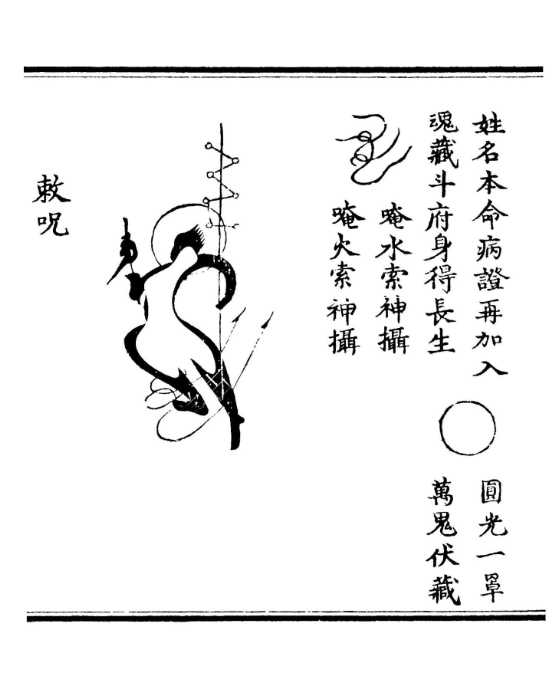 姓名本命病證再加入
魂藏斗府身得長生
圓光一罩
萬鬼伏藏
唵水索神攝
唵火索神攝
敕呪